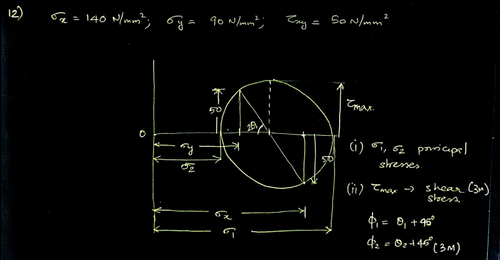 12) σx = 140 N/mm²; σy = 90 N/mm²; τxy = 50 N/mm²
τmax.
50
2θ
0
σy
50
σ2
σx
σ1
(i) σ1, σ2 principal
stresses.
(ii) τmax → shear (3M)
stress.
ϕ1 = θ1 + 45°
ϕ2 = θ2 + 45° (3M)